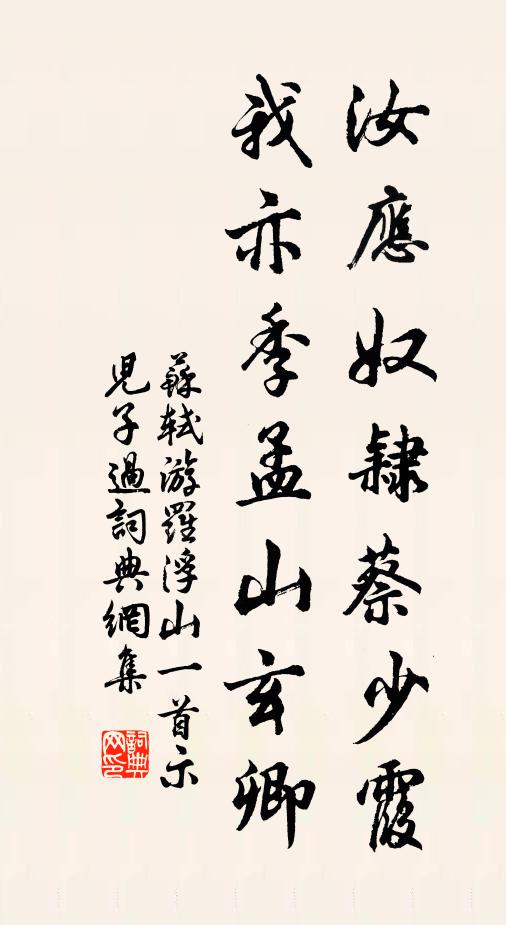 汝應奴隸蔡少霞
我亦季孟山玄卿
蘇軾游羅浮山一首示
児子過詞典網集
詞典
网印